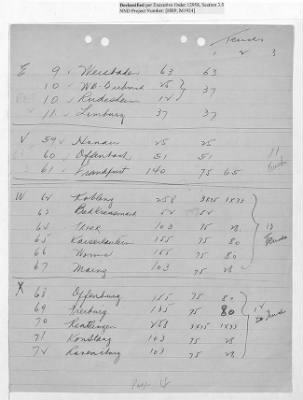 Declassified per Executive Order 12958, Section 3.5
NND Project Number:
Trucks
1 2 3
E 9 Wiesbaden 63 63
10 25 37
10 Rudesheim 12
11 Limburg 37 37
V 59 Hanau 25 25
60 Offenbach 51 51 11
61 Frankfurt 140 75 65
W 62 Koblenz 258
63 52 52
64 Trier 103 75 28
65 Kaiserslautern 155 75 80
66 Worms 155 75 80
67 Mainz 103 75 28
X 68 Offenburg 155 75 80
69 Freiburg 155 75 80
70 Reutlingen 258
71 Konstanz 103 75 28
72 Ravensburg 103 75 28